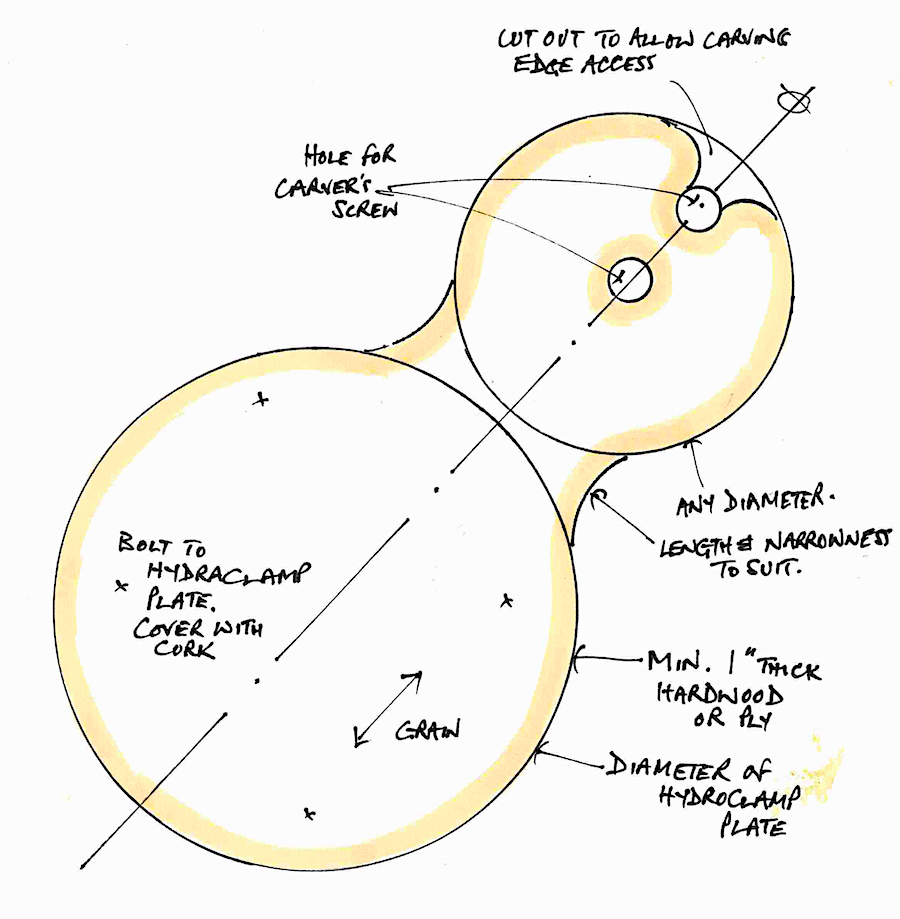 CUT OUT TO ALLOW CARVING
EDGE ACCESS
HOLE FOR
CARVER'S
SCREW
ANY DIAMETER.
LENGTH & NARROWNESS
TO SUIT.
BOLT TO
HYDRACLAMP
PLATE.
COVER WITH
CORK
MIN. 1" THICK
HARDWOOD
OR PLY
GRAIN
DIAMETER OF
HYDROCLAMP
PLATE